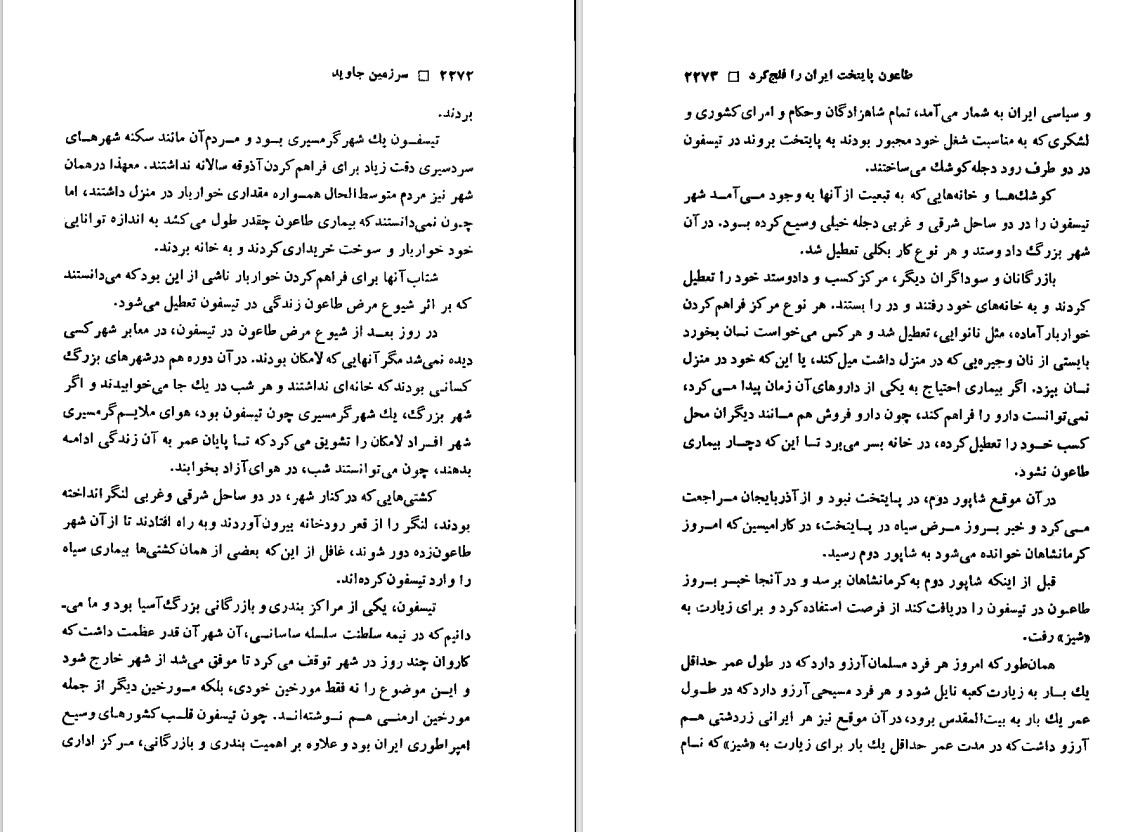 ۲۲۷۲ □ سرزمین جاوید
بردند.
تیسفـون یك شهرگرمسیری بـود و مـردم‌آن مانند سکنه شهرهـای
سردسیری دقت زیاد برای فراهم‌کردن‌آذوقه سالانه نداشتند. معهذا درهمان
شهر نیز مردم متوسط‌الحال همـواره مقداری خواربار در منزل داشتند، اما
چـون نمی‌دانستندکه بیماری طاعون چقدر طول می‌کشد به اندازه توانایی
خود خواربار و سوخت خریداری‌کردند و به خانه بردند.
شتاب‌آنها برای فراهم‌کردن خواربار ناشی از این بودکه می‌دانستند
که بر اثر شیوع مرض طاعون زندگی در تیسفون تعطیل می‌شود.
در روز بعـد از شیـوع مرض طاعون در تیسفون، در معابر شهرکسی
دیده نمی‌شد مگرآنهایی‌که لامکان بودند. درآن دوره هم درشهرهای بزرگ
کسانی بودندکه خانه‌ای نداشتند و هر شب در یك جا می‌خوابیدند و اگر
شهر بزرگ، یك شهرگرمسیری چون تیسفون بود، هوای ملایـم‌گرمسیری
شهر افـراد لامکان را تشویق می‌کردکه تـا پایان عمر به آن زندگی ادامـه
بدهند، چون می‌توانستند شب، در هوای‌آزاد بخوابند.
کشتی‌هایی‌که درکنار شهر، در دو ساحل شرقی وغربی لنگرانداخته
بودند، لنگر را از قعر رودخانه بیرون‌آوردند وبه راه افتادند تا ازآن شهر
طاعون‌زده دور شوند، غافل از این‌که بعضی از همان‌کشتی‌ها بیماری سیاه
را وارد تیسفون‌کرده‌اند.
تیسفون، یکی از مراکز بندری و بازرگانی بزرگ‌آسیا بود و ما می‌ـ
دانیم‌که در نیمه سلطنت سلسله ساسانـی،آن شهرآن قدر عظمت داشت‌که
کاروان چند روز در شهر توقف می‌کرد تا موفق می‌شد از شهر خارج شود
و ایـن موضوع را نه فقط مورخین خودی، بلکه مـورخین دیگر از جمله
مورخین ارمنی هـم نـوشته‌انـد. چون تیسفون قلـب کشورهـای وسیـع
امپراطوری ایران بود و علاوه بر اهمیت بندری و بازرگانی، مرکز اداری
طاعون پایتخت ایران را فلج‌کرد □ ۲۲۷۳
و سیاسی ایران به شمار می‌آمد، تمام شاهزادگان وحکام و امرای‌کشوری و
لشکری‌که به مناسبت شغل خود مجبور بودند به پایتخت بروند در تیسفون
در دو طرف رود دجله‌کوشك می‌ساختند.
کوشك‌هـا و خانه‌هایی‌که به تبعیت ازآنها به وجود مـی‌آمـد شهر
تیسفون را در دو ساحل شرقی و غربی دجله خیلی وسیع‌کرده بـود. درآن
شهر بزرگ داد وستد و هر نوع‌کار بکلی تعطیل شد.
بازرگانان و سوداگران دیگر، مرکزکسب و دادوستد خود را تعطیل
کردند و به خانه‌های خود رفتند و در را بستند. هر نوع مرکز فراهم‌کردن
خواربارآماده، مثل نانوایی، تعطیل شد و هرکس می‌خواست نـان بخورد
بایستی از نان وجیره‌یی‌که در منزل داشت میل‌کند، یا این‌که خود در منزل
نـان بپزد. اگر بیماری احتیاج به یکی از داروهای‌آن زمان پیدا مـی‌کرد،
نمی‌توانست دارو را فراهم‌کند، چون دارو فروش هم مـانند دیگران محل
کسب خـود را تعطیل‌کرده، در خانه بسر می‌برد تـا این‌که دچـار بیماری
طاعون نشود.
درآن موقـع شاپور دوم، در پـایتخت نبود و ازآذربایجان مـراجعت
مـی‌کرد و خبر بـروز مـرض سیاه در پـایتخت، درکارامیسین‌که امـروز
کرمانشاهان خوانده می‌شود به شاپور دوم رسید.
قبل از اینکه شاپور دوم به‌کرمانشاهان برسد و درآنجا خبـر بـروز
طاعـون در تیسفون را دریافت‌کند از فرصت استفاده‌کرد و برای زیارت به
«شیز» رفت.
همان‌طورکه امروز هر فرد مسلمان‌آرزو داردکه در طول عمر حداقل
یك بـار به زیارت‌کعبه نایل شود و هر فرد مسیحی‌آرزو داردکه در طـول
عمر یك بار به بیت‌المقدس برود، درآن موقع نیز هر ایرانی زردشتی هـم
آرزو داشت‌که در مدت عمر حداقل یك بار برای زیارت به «شیز»که نـام